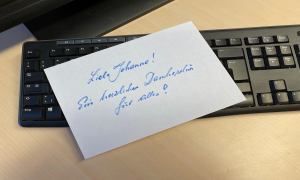 Liebe Johanna!
Ein herzliches Dankeschön
für alles!